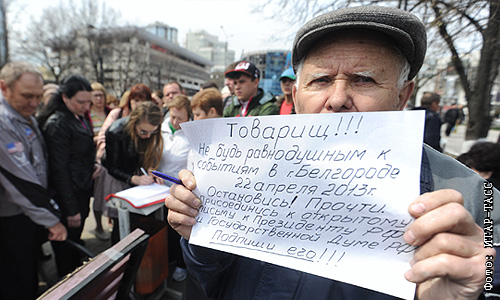 Товарищ!!!
Не будь равнодушным к
событиям в г. Белгороде
22 апреля 2013г.
Остановись! Прочти,
присоединись к открытому
письму к Президенту РФ
и Государственной Думе РФ
Подпиши его!!!
Фото: ИТАР-ТАСС